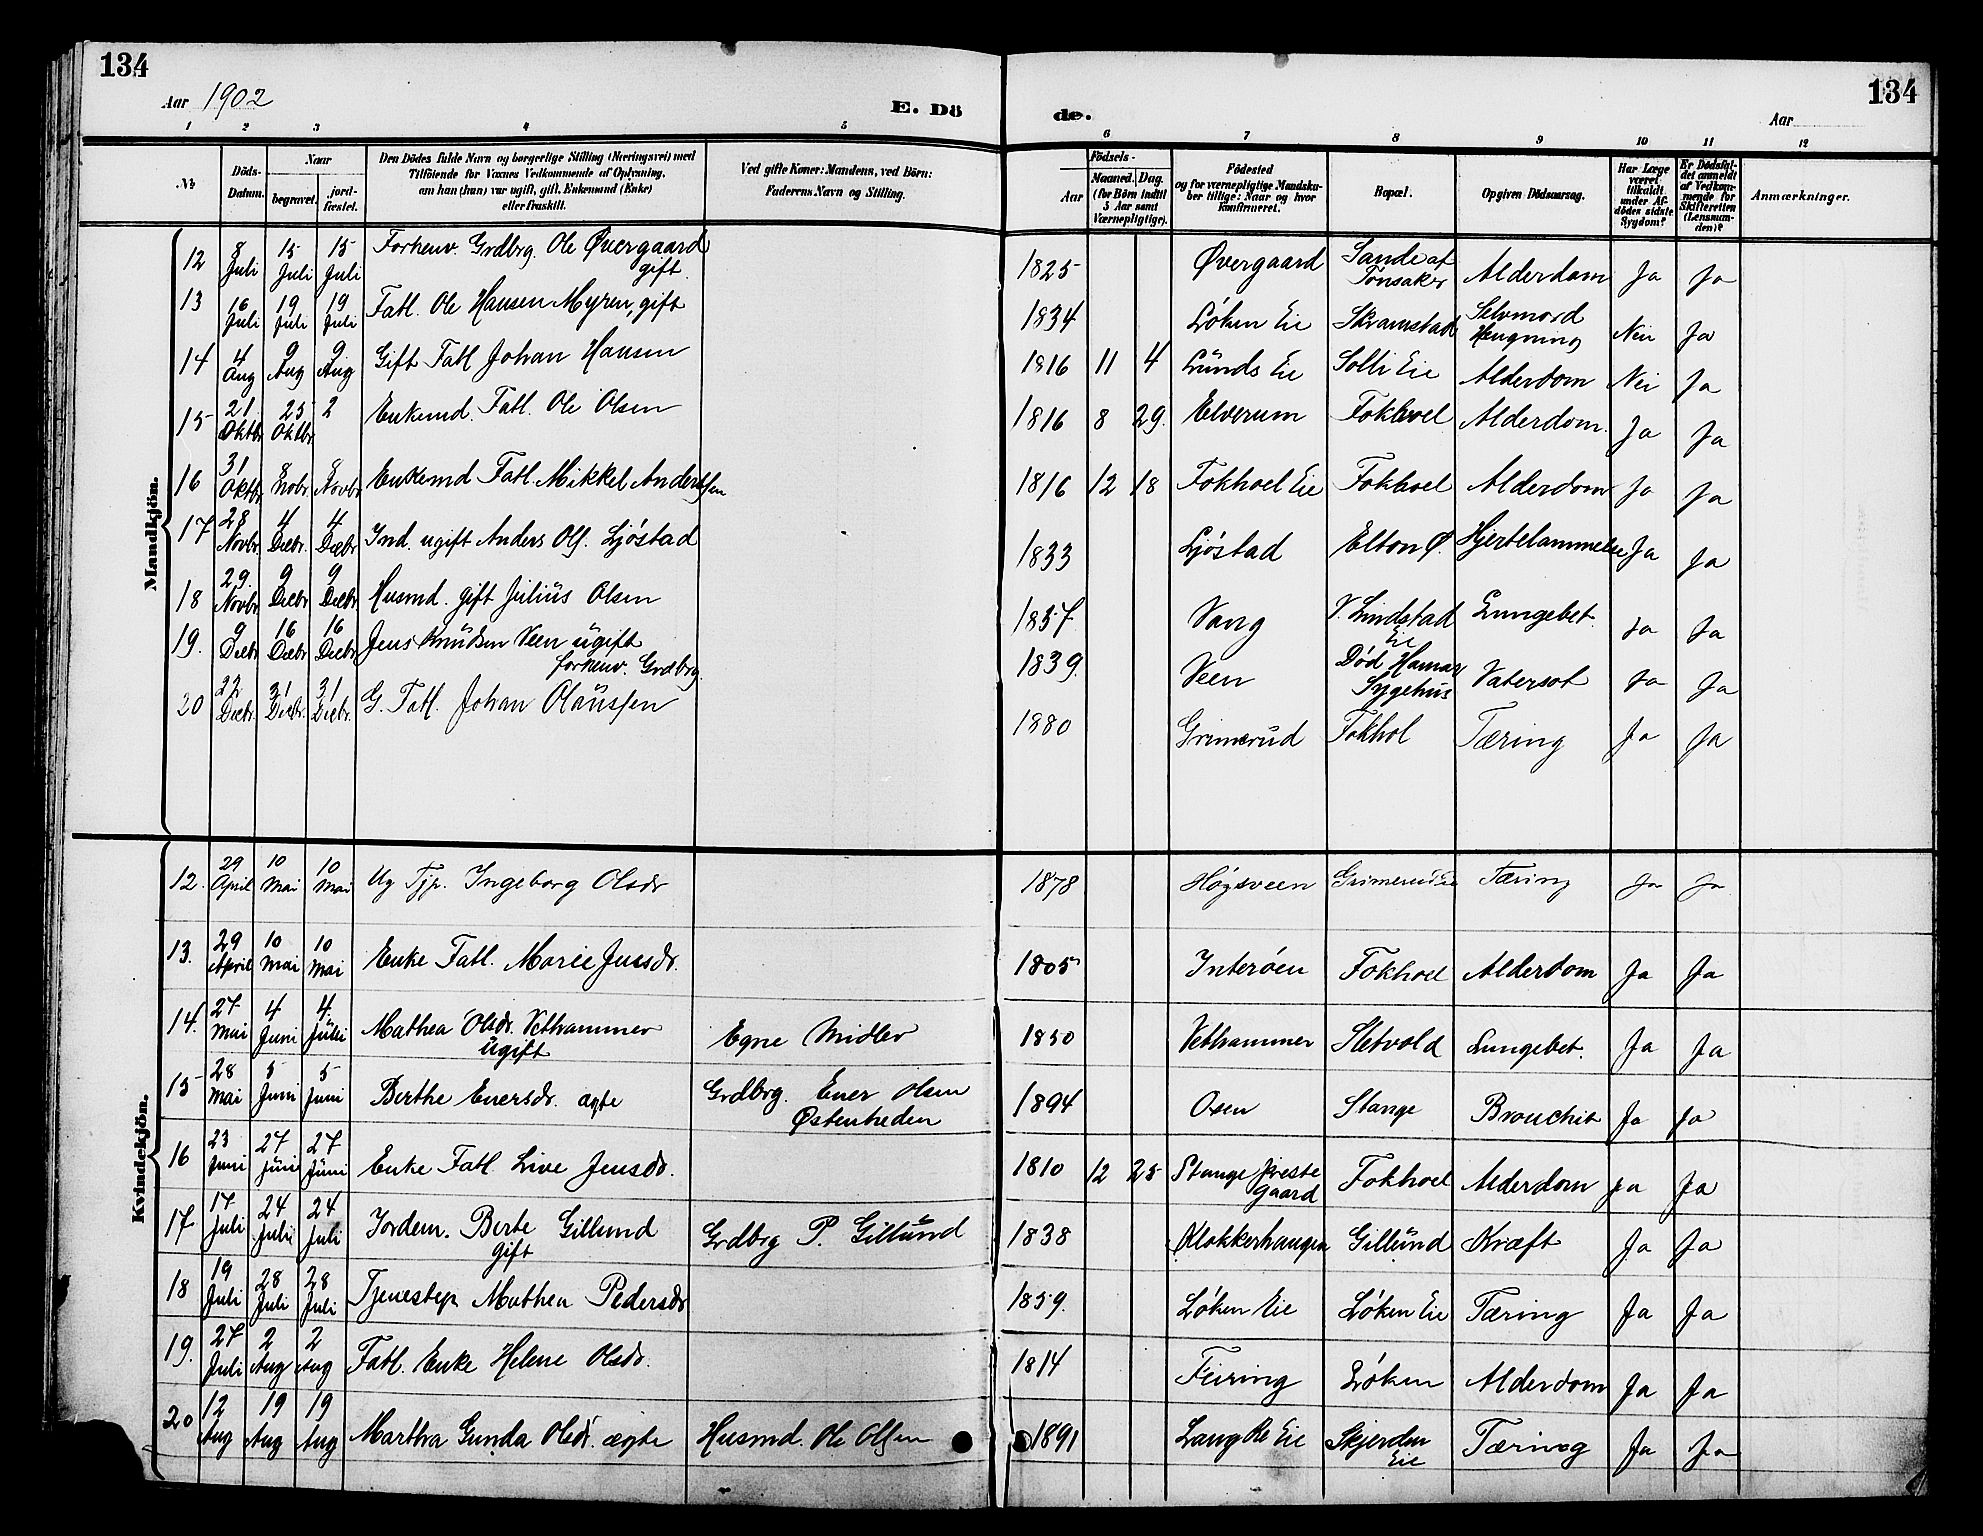 134
Aar 1902
E. Dö
de.
Aar
134
1 2 3 4 5 6 7 8 9 10 11 12
No
Döds-
Datum.
Naar
begravet.
jord-
fæstet.
Den Dödes fulde Navn og borgerlige Stilling (Næringsvei) med
Tilföiende for Voxnes Vedkommende af Oplysning,
om han (hun) var ugift, gift, Enkemand (Enke)
eller fraskilt.
Ved gifte Koner: Mandens, ved Börn:
Faderens Navn og Stilling.
Födsels-
Aar
Maaned. Dag.
(for Börn indtil
5 Aar samt
Værnepligtige).
Födested
og for værnepligtige Mandska-
ber tillige: Naar og hvor
konfirmeret.
Bopæl.
Opgiven Dödsaarsag.
Har Læge
været
tilkaldt
under Af-
dödes sidste
Sygdom?
Er Dödsfal-
det anmeldt
af Vedkom-
mende for
Skifteretten
(Lensman-
den)?
Anmærkninger.
Mandkjön.
12 8 Juli 15 Juli 15 Juli Forhenv. Grdbrg. Ole Øvergaard gift. 1825 Øvergaard Sande af Tønsaker Alderdom Ja Ja
13 16 Juli 19 Juli 19 Juli Fatl. Ole Hansen Myren, gift 1834 Løken Eie Skramstad Selvmord Hængning Nei Ja
14 4 Aug 9 Aug 9 Aug Gift Fatl Johan Hansen 1816 11 4 Lunds Eie Solli Eie Alderdom Nei Ja
15 21. Oktbr 25 Oktbr 2 Enkemd. Fatl. Ole Olsen 1816 8 29. Elverum Fokhoel Alderdom. Ja Ja
16 31 Oktbr 8 Novbr 8 Novbr Enkemd Fatl. Mikkel Andersen 1816 12 18 Fokhoel Eie Fokhoel Alderdom Ja Ja
17 28 Novbr 4 Decbr. 4 Decbr Ind. ugift Anders Ols. Ljøstad 1833 Ljøstad Elton Ø. Hjertelammelse Ja Ja
18 29. Novbr 9 Decbr 9 Decbr Husmd. gift Julius Olsen 1857 Vang V. Lindstad Eie Lungebet. Ja Ja
19. 9 Decbr 16 Decbr 16 Decbr Jens Knudsen Veen ugift forhenv. Grdbrg. 1839. Veen Død Hamar Sygehus Vatersot Ja Ja
20 22 Decbr. 31 Decbr. 31 Decbr. G. Fatl. Johan Olaussen 1880 Grimerud Fokhol Tæring Ja Ja
Kvindekjön.
12. 29 April 10 Mai 10 Mai Ug Tjp. Ingeborg Olsdr 1878 Høgsveen Grimerud Eie Tæring Ja Ja
13. 29 April 10 Mai 10 Mai Enke Fatl. Marie Jensdr. 1805 Interøen Fokhoel Alderdom Ja Ja
14. 27 Mai 4 Juni 4. Juli Mathea Olsdr. Vethammer ugift Egne Midler 1850 Vethammer Sletvold Lungebet. Ja Ja
15 28 Mai 5 Juni 5 Juni Berthe Enersdr. ægte Grdbrg. Ener Olsen Østenheden 1894 Osen Stange Bronchit Ja Ja
16 23 Juni 27 Juni 27 Juni Enke Fatl. Live Jensdr. 1810 12 25 Stange Prestegaard Fokhoel Alderdom Ja Ja
17. 17 Juli 24 Juli 24 Juli Jordem. Berte Gillund gift Grdbrg P. Gillund 1838 Klokkerhaugen Gillund Kræft Ja Ja
18 19 Juli 28 Juli 28 Juli Tjenestep Mathea Pedersdr 1859. Løken Eie Løken Eie Tæring Ja Ja
19. 27 Juli 2 Aug 2 Aug Fatl. Enke Helene Olsdr. 1814 Feiring Løken Alderdom Ja Ja
20 12 Aug 19 Aug 19 Aug Martha Gunda Olsdr. ægte Husmd. Ole Olsen 1891 Eie Skjerden Eie Tæring Ja Ja